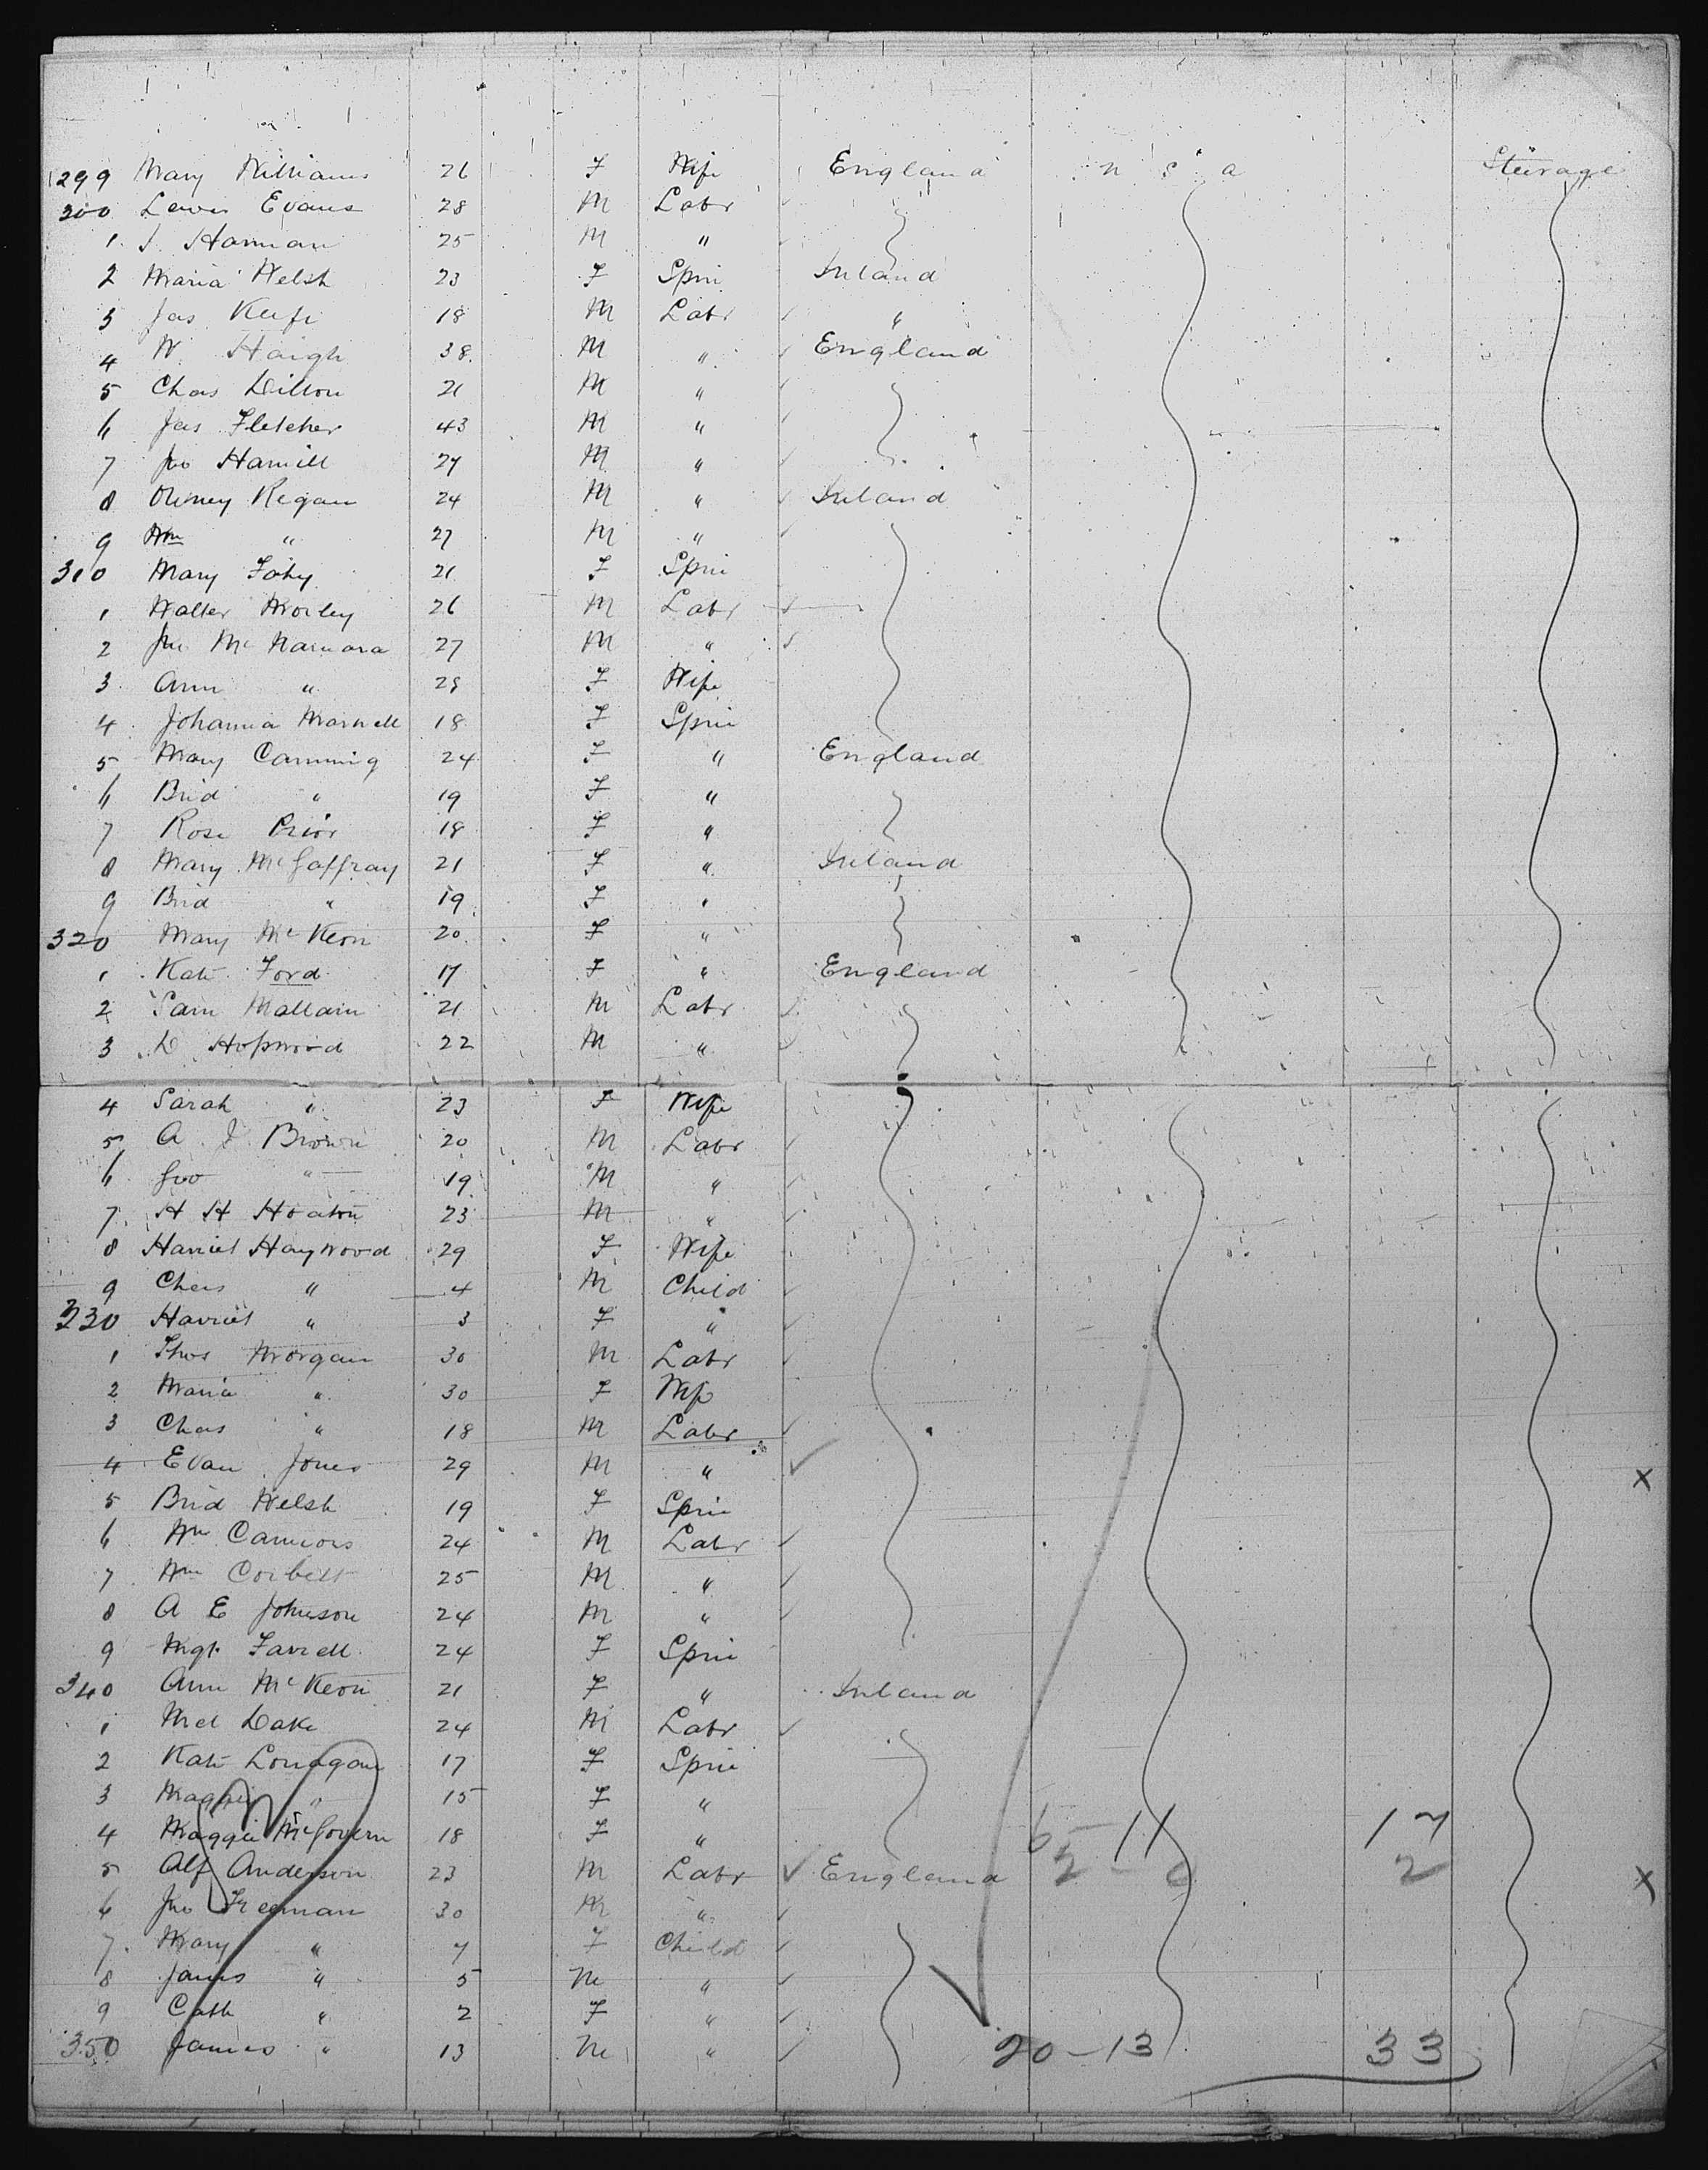 299 Mary Williams 26 F Wife England U S A Steerage
300 Lewis Evans 28 M Labr
1 J. Harman 25 M "
2 Maria Welsh 23 F Spin Ireland
3 Jas Keefe 18 M Labr "
4 W Haigh 38 M " England
5 Chas Dillon 21 M "
6 Jas Fletcher 43 M "
7 Jno Hamill 24 M "
8 Regan 24 M " Ireland
9 Wm " 27 M "
310 Mary Fahy 21 F Spin
1 Walter Morley 26 M Labr
2 Jno McNamara 27 M "
3 Ann " 28 F Wife
4 Johanna 18 F Spin
5 Mary Canning 24 F " England
6 Brid " 19 F "
7 Rose Prior 18 F "
8 Mary McGaffray 21 F " Ireland
9 Brid " 19 F "
320 Mary McKeon 20 F "
1 Kate Ford 17 F " England
2 Sam Mallam 21 M Labr
3 D Hopwood 22 M "
4 Sarah " 23 F Wife
5 A J Brown 20 M Labr
6 Geo " 19 M "
7 H H 23 M "
8 Harriet Haywood 29 F Wife
9 Chas " 4 M Child
330 Harriet " 3 F "
1 Thos Morgan 30 M Labr
2 Maria " 30 F Wife
3 Chas " 18 M Labr
4 Evan Jones 29 M " X
5 Brid Welsh 19 F Spin
6 Wm 24 M Labr
7 Wm Corbett 25 M "
8 A E Johnson 24 M "
9 Mgt Farrell 24 F Spin
340 Ann McKeon 21 F " Ireland
1 Mcl Dake 24 M Labr
2 Kate Lonagan 17 F Spin
3 Maggie " 15 F "
4 Maggie McGovern 18 F " 11 17
5 Alf Anderson 23 M Labr England 2 2 X
6 Jno Freeman 30 M "
7 Mary " 7 F Child
8 James " 5 M "
9 Cath " 2 F "
350 James " 13 M " 20-13 33